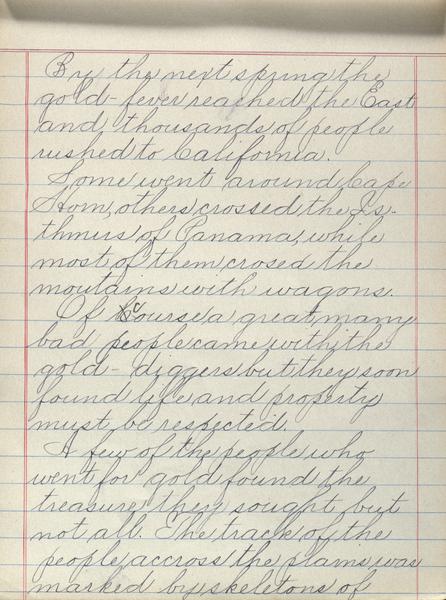 By the next spring the
gold-fever reached the East
and thousands of people
rushed to California.
Some went around Cape
Horn, others crossed the Is-
thmus of Panama, while
most of them crosed the
moutains with wagons.
Of course a great many
bad people came with the
gold-diggers but they soon
found life and property
must be respected.
A few of the people who
went for gold found the
treasure they sought but
not all. The track of the
people accross the plains was
marked by skeletons of